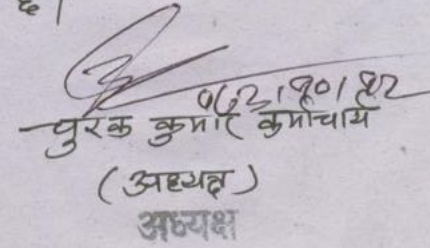 छ।
०८२।१०।१२
पुरक कुमार कुर्माचार्य
(अध्यक्ष)
अध्यक्ष